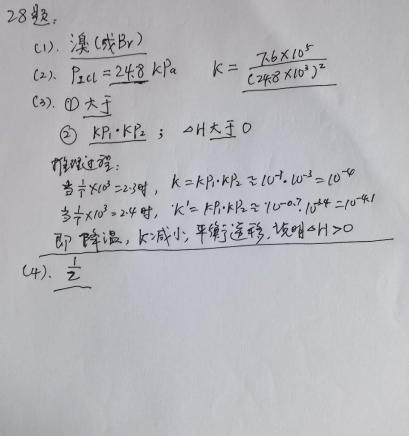 28题:
(1). 溴(或Br)
(2). P_ICl = 24.8 kPa K = 7.6×10⁵ / (24.8×10³)²
(3). ① 大于
② KP₁·KP₂ ; △H大于0
推理过程:
当 1/T ×10³=2.3时, K=KP₁·KP₂≈10⁻¹·10⁻³=10⁻⁴
当 1/T ×10³=2.4时, K'=KP₁·KP₂≈10⁻⁰·⁷·10⁻³·⁴=10⁻⁴·¹
即降温, K减小, 平衡逆移, 说明△H>0
(4). 1/2